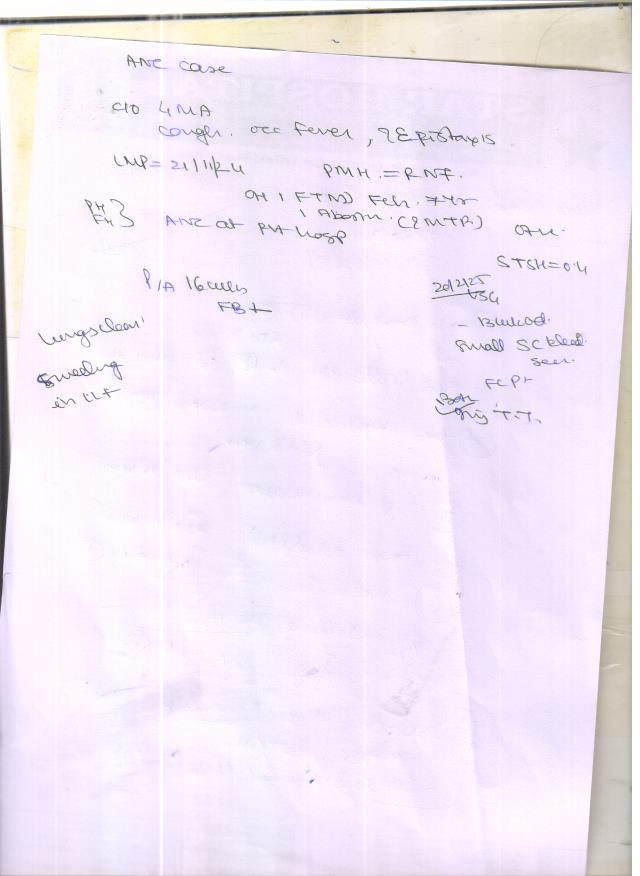 ANC case
C/O 4 MA
cough. occ Fever, ? Epistaxis
LMP = 21/11/24 PMH. = RNF.
OH 1 FTND Feh. 7yr
PH
FH } ANC at Pvt Hosp
1 Abortn. (? MTP.)
STSH = 0.4
P/A 16 weeks
FB+
20/2/25
USG
Lungs clear
- small SC bleed.
seen.
Swelling
in LLF
FCP+
inj T.T.